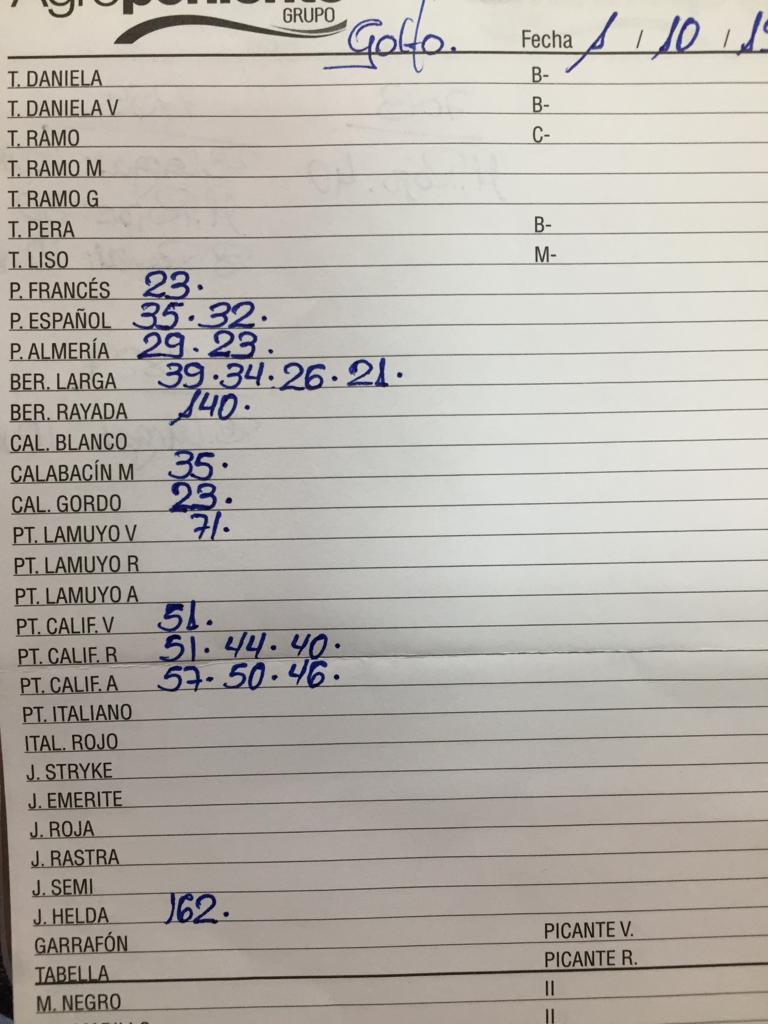 Agroponiente
GRUPO
Golfo. Fecha 1 / 10 / 19
T. DANIELA B-
T. DANIELA V B-
T. RAMO C-
T. RAMO M
T. RAMO G
T. PERA B-
T. LISO M-
P. FRANCÉS 23.
P. ESPAÑOL 35. 32.
P. ALMERÍA 29. 23.
BER. LARGA 39. 34. 26. 21.
BER. RAYADA 140.
CAL. BLANCO
CALABACÍN M 35.
CAL. GORDO 23.
PT. LAMUYO V 71.
PT. LAMUYO R
PT. LAMUYO A
PT. CALIF. V 51.
PT. CALIF. R 51. 44. 40.
PT. CALIF. A 57. 50. 46.
PT. ITALIANO
ITAL. ROJO
J. STRYKE
J. EMERITE
J. ROJA
J. RASTRA
J. SEMI
J. HELDA 162.
GARRAFÓN PICANTE V.
TABELLA PICANTE R.
M. NEGRO II
II